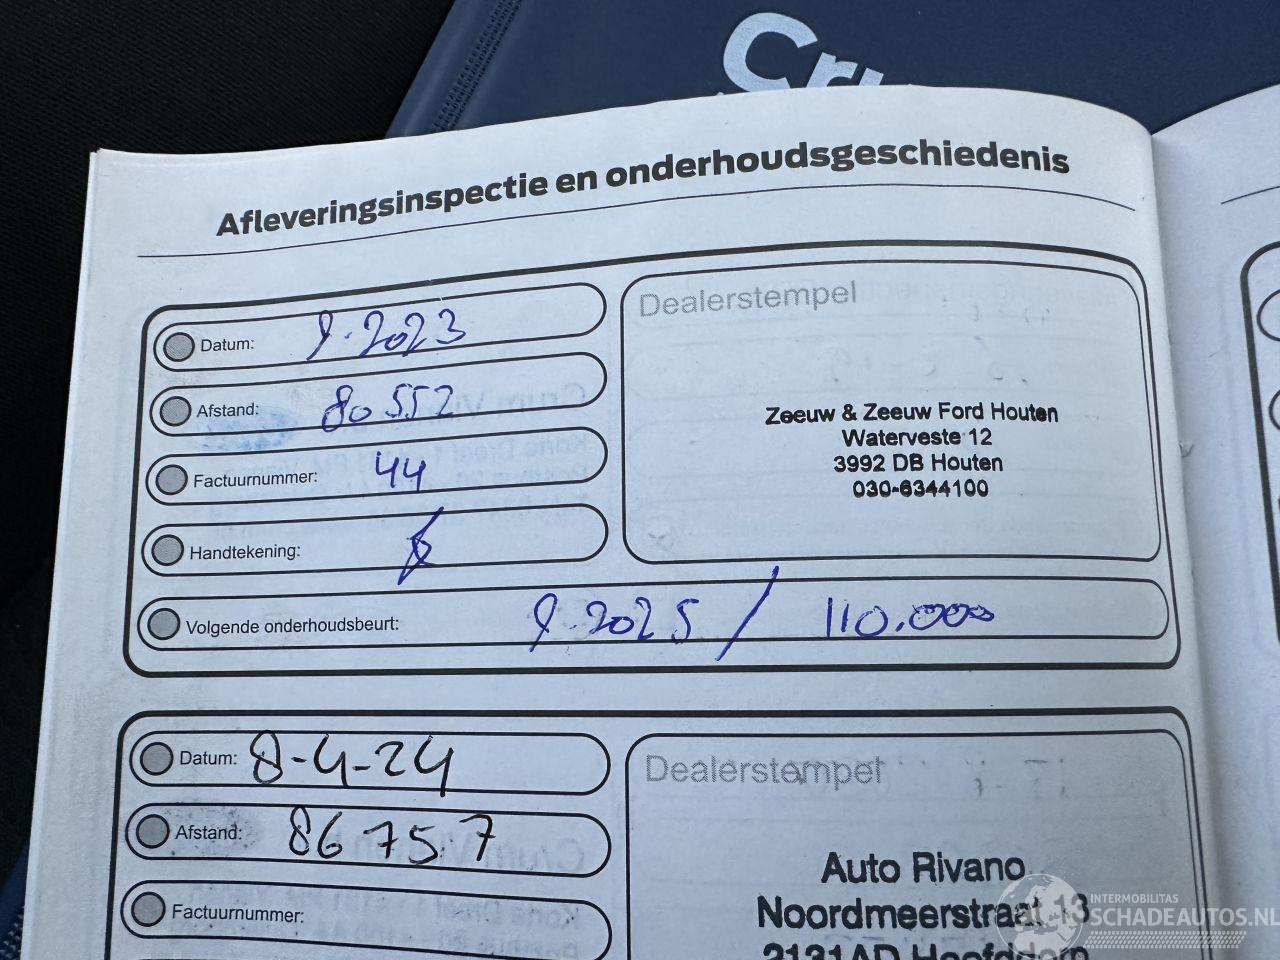 Afleveringsinspectie en onderhoudsgeschiedenis
Datum: 9-2023
Afstand: 80 552
Factuurnummer: 44
Handtekening:
Volgende onderhoudsbeurt: 9-2025 / 110.000
Dealerstempel
Zeeuw & Zeeuw Ford Houten
Waterveste 12
3992 DB Houten
030-6344100
Datum: 8-4-24
Afstand: 86757
Factuurnummer:
Dealerstempel
Auto Rivano
Noordmeerstraat 13
2131AD Hoofddorp
INTERMOBILITAS
SCHADEAUTOS.NL